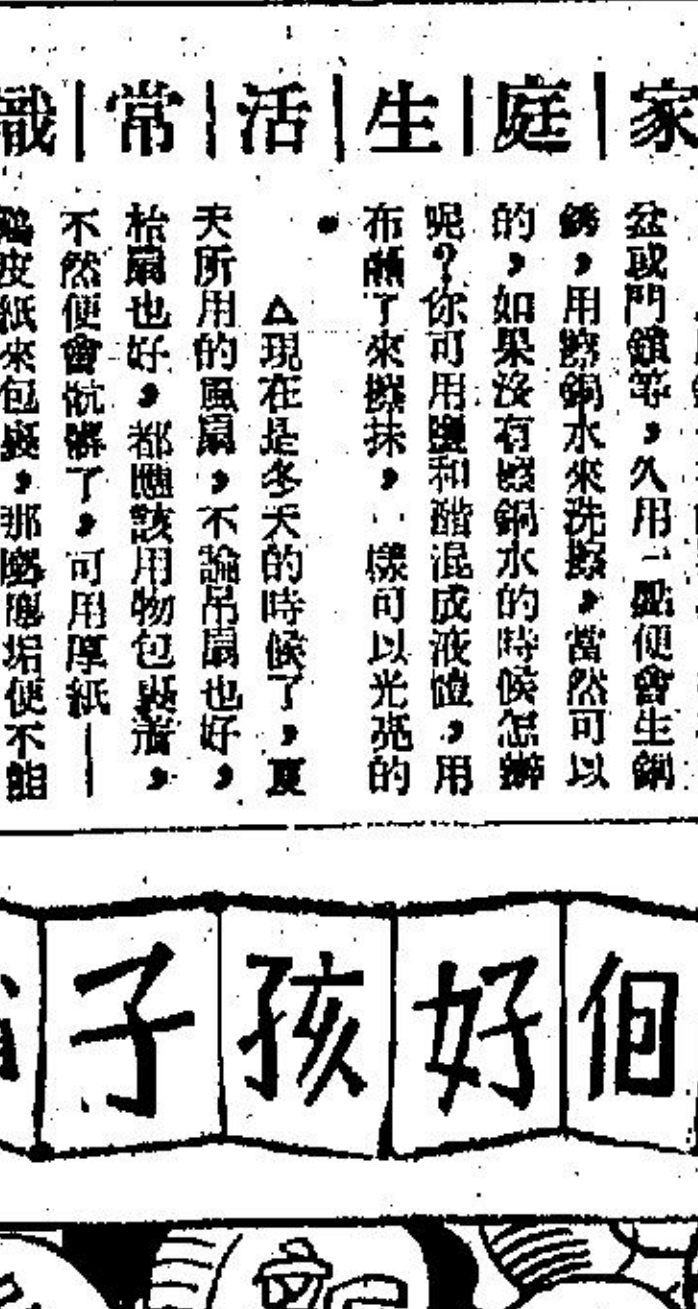 家|庭|生|活|常|識
盆或門鎖等,久用一點便會生銅
銹,用擦銅水來洗擦,當然可以
的,如果沒有擦銅水的時候怎辦
呢?你可用鹽和醋混成液體,用
布蘸了來擦抹,一樣可以光亮的
。
△現在是冬天的時候了,夏
天所用的風扇,不論吊扇也好,
枱扇也好,都應該用物包裹着,
不然便會骯髒了,可用厚紙——
鷄皮紙來包裹,那麽塵垢便不能
個好孩子